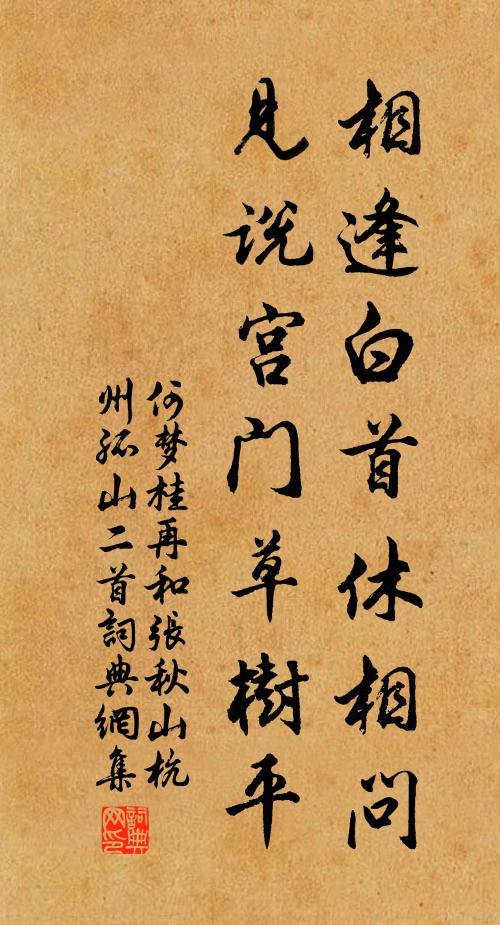 相逢白首休相问
见说宫门草樹平
何梦桂再和張秋山杭
州孤山二首詞典網集
詞典网印